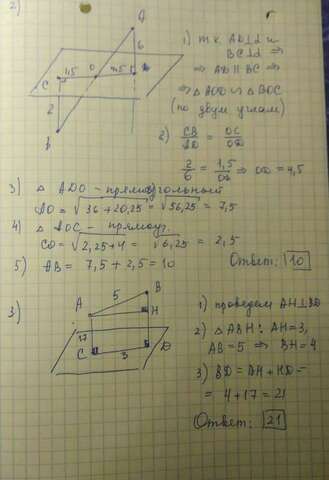 2)
A
6
1) т.к. AD⊥α и
BC⊥α ⇒
⇒ AD ∥ BC ⇒
⇒ △AOD ∾ △BOC
(по двум углам)
C 1,5 O 4,5 D
2
B
2) CB/AD = OC/OD
2/6 = 1,5/OD ⇒ OD = 4,5
3) △ ADO - прямоугольный
AO = √36 + 20,25 = √56,25 = 7,5
4) △ BOC - прямоуг.
CO = √2,25+4 = √6,25 = 2,5
5) AB = 7,5 + 2,5 = 10
Ответ: 10
3)
B
5
A
H
17
C
3
D
1) проведем AH⊥BD
2) △ABH: AH=3,
AB=5 ⇒ BH=4
3) BD = AH + HD =
= 4+17 = 21
Ответ: 21